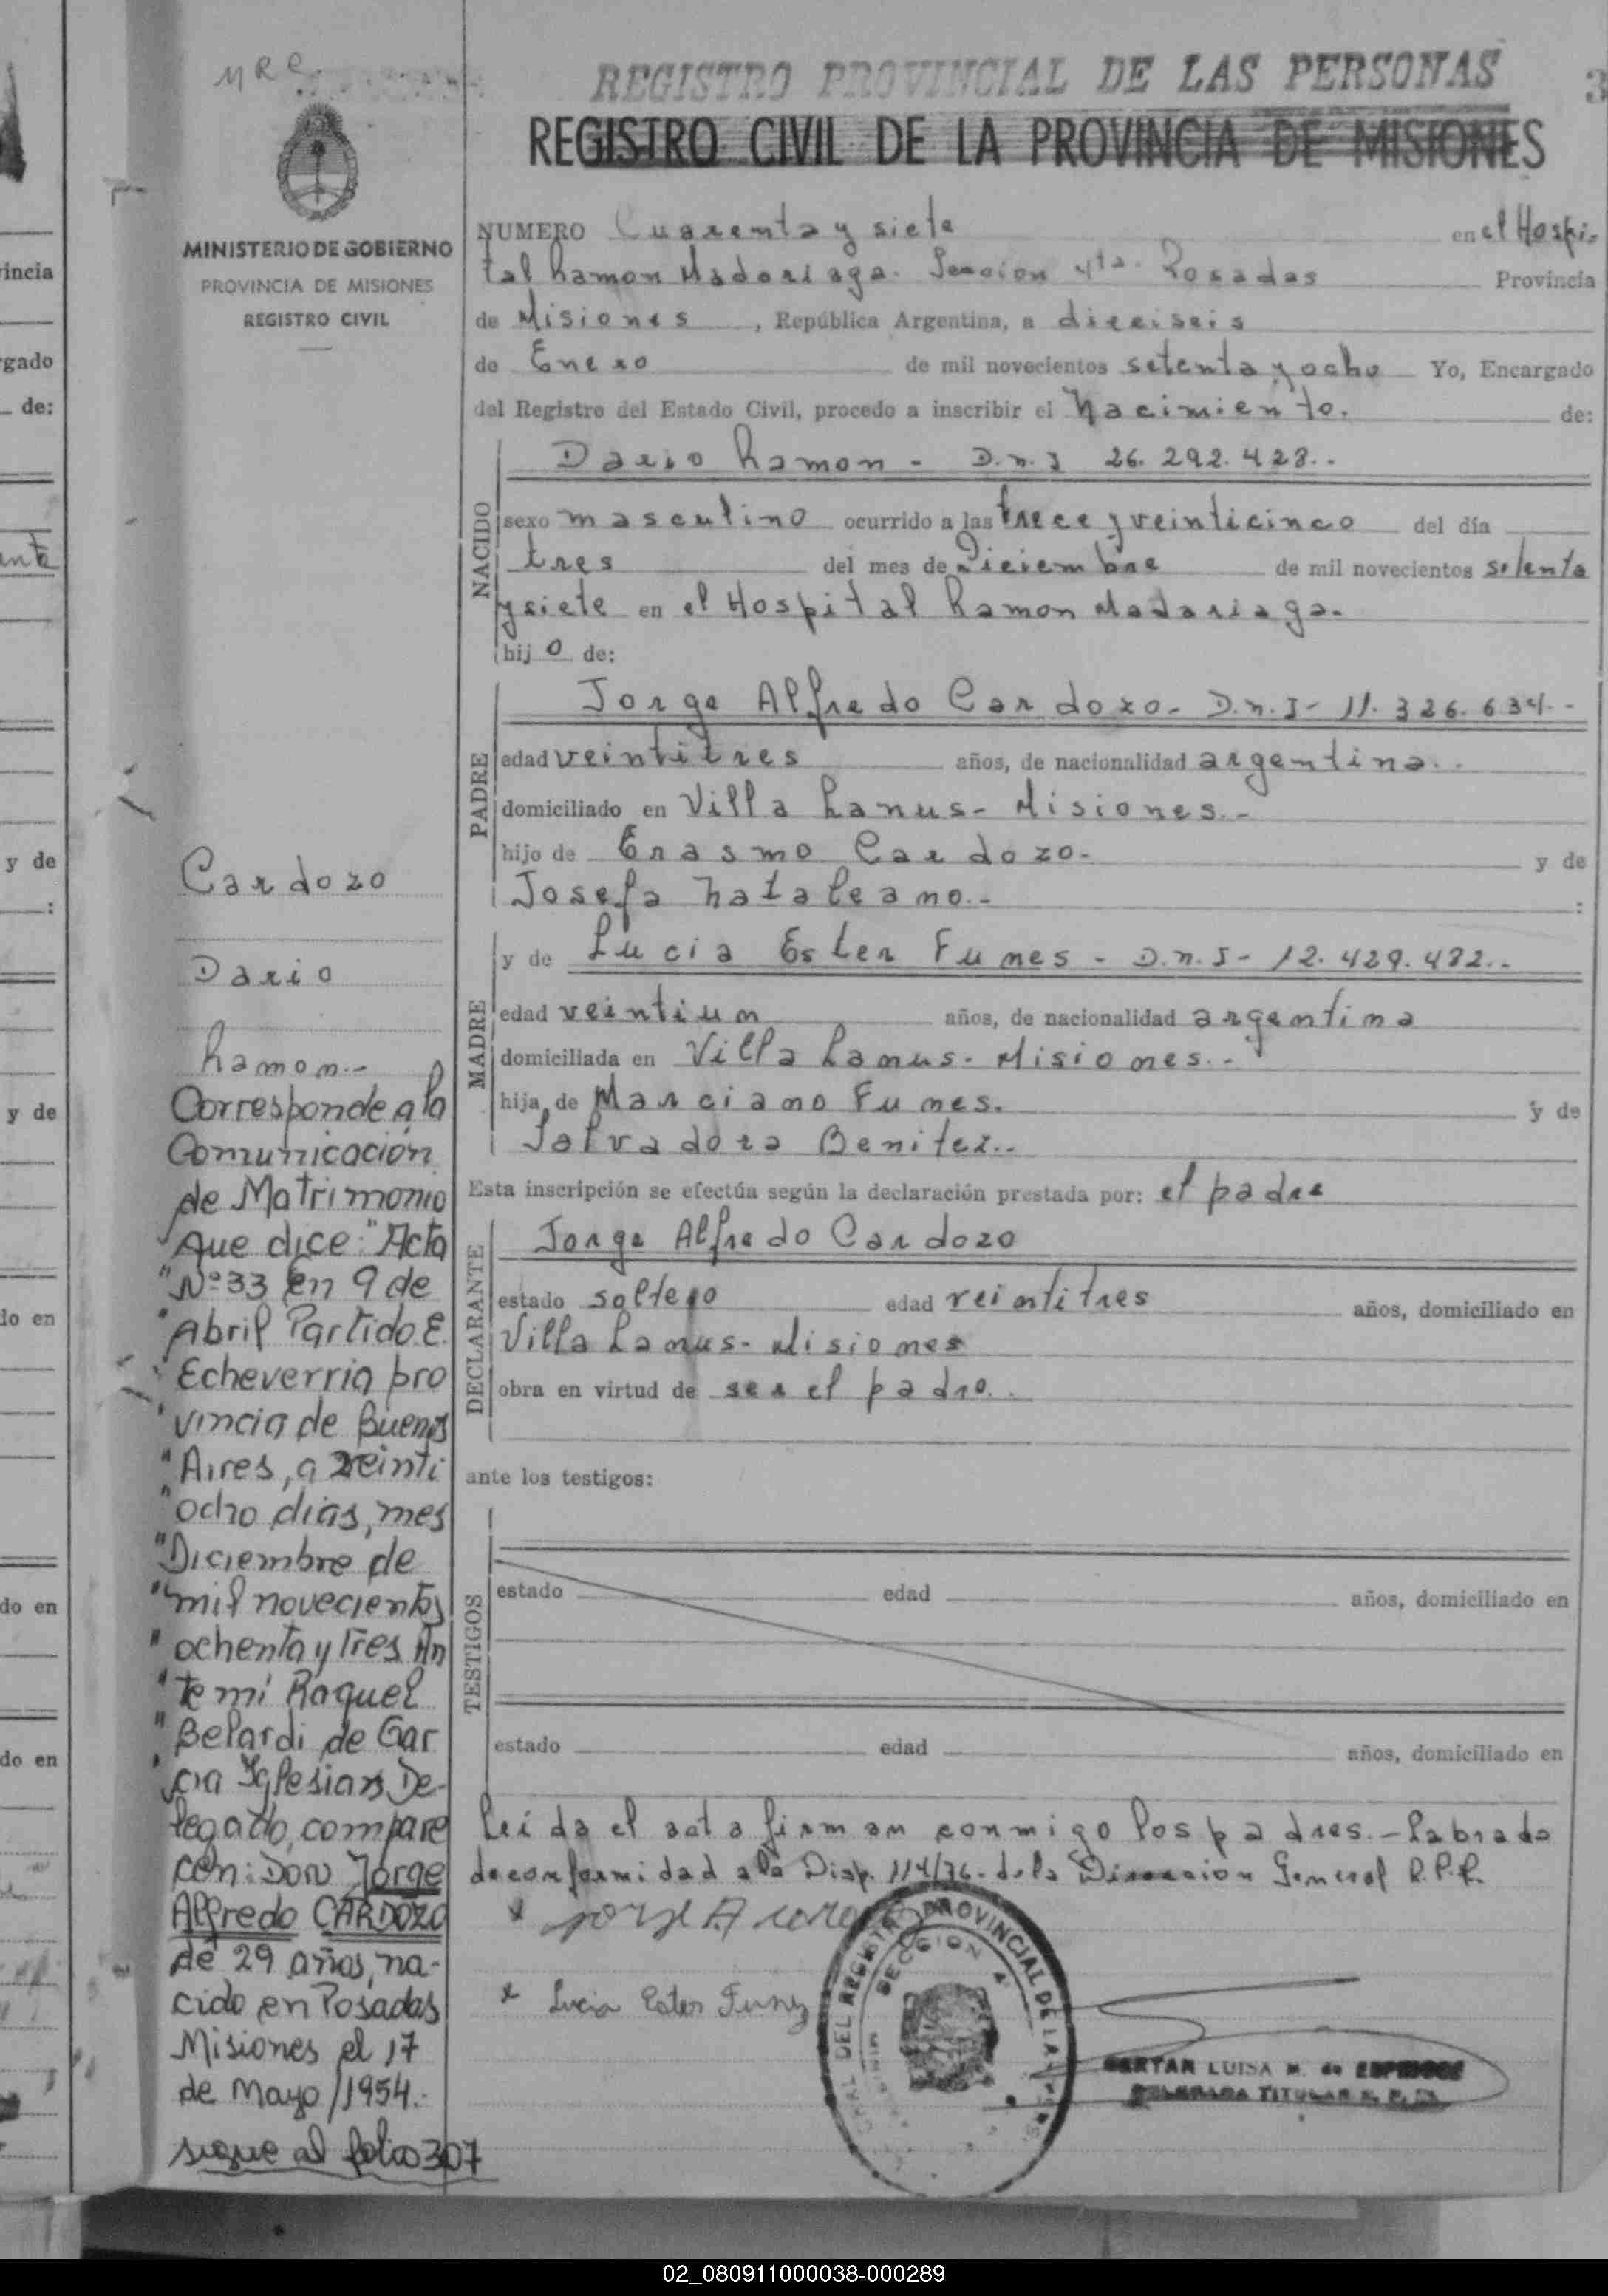 MRC
REGISTRO PROVINCIAL DE LAS PERSONAS
3
REGISTRO CIVIL DE LA PROVINCIA DE MISIONES
MINISTERIO DE GOBIERNO
PROVINCIA DE MISIONES
REGISTRO CIVIL
NUMERO Cuarenta y siete en el Hospi-
tal Ramon Madariaga. Seccion 4ta. Posadas Provincia
de Misiones, República Argentina, a dieciseis
de Enero de mil novecientos setenta y ocho Yo, Encargado
del Registro del Estado Civil, procedo a inscribir el Nacimiento. de:
NACIDO
Dario Ramon - D.n.I 26.292.428.-
sexo masculino ocurrido a las trece y veinticinco del día
tres del mes de Diciembre de mil novecientos setenta
y siete en el Hospital Ramon Madariaga.
hijo de:
PADRE
Jorge Alfredo Cardozo. D.n.I- 11.326.634.-
edad veintitres años, de nacionalidad argentina..
domiciliado en Villa Lanus- Misiones.-
hijo de Erasmo Cardozo- y de
Josefa Nataleano.- :
MADRE
y de Lucia Ester Funes - D.n.I- 12.429.432..
edad veintiun años, de nacionalidad argentina
domiciliada en Villa Lanus- Misiones.-
hija de Marciano Funes. y de
Salvadora Benitez..
Esta inscripción se efectúa según la declaración prestada por: el padre
DECLARANTE
Jorge Alfredo Cardozo
estado soltero edad veintitres años, domiciliado en
Villa Lanus- Misiones
obra en virtud de ser el padre.
ante los testigos:
TESTIGOS
estado edad años, domiciliado en
estado edad años, domiciliado en
Leida el acta firman conmigo los padres.- Labrada
de conformidad a la Disp. 114/76. de la Direccion General R.P.P.
x Jorge A
x Lucia Ester Funez
DEL REGISTRO PROVINCIAL DE LAS
SECCION 4
BERTAN LUISA M. de ESPINDOLA
DELEGADA TITULAR R. P. P.
Cardozo
Dario
Ramon.-
Corresponde a la
Comunicación
de Matrimonio
que dice: "Acta
"Nº33 en 9 de
"Abril Partido E.
"Echeverria pro
"vincia de Buenos
"Aires, a veinti
"ocho dias, mes
"Diciembre de
"mil novecientos
"ochenta y tres An
"te mi Raquel
"Belardi de Gar
"cia Iglesias De-
legado, compare
cen: DON Jorge
Alfredo CARDOZO
de 29 años, na-
cido en Posadas
Misiones el 17
de Mayo/1954.-
sigue al folio 307
incia
gado
de:
ente
y de
:
y de
do en
do en
do en
02_080911000038-000289